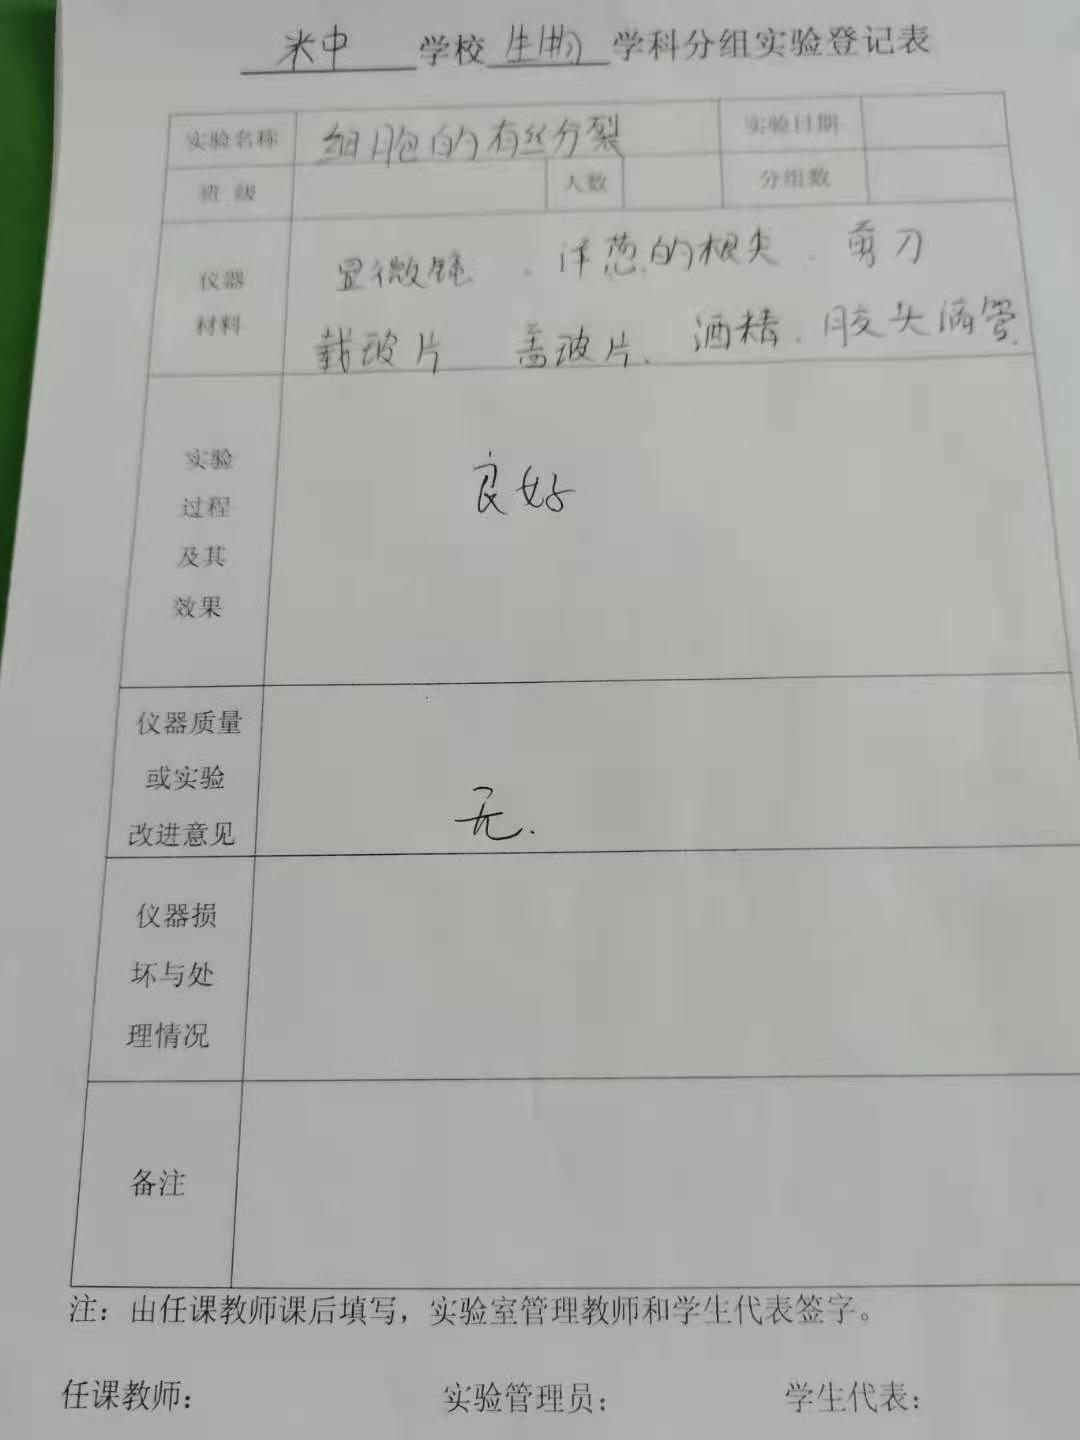 米中 学校 生物 学科分组实验登记表
实验名称 细胞的有丝分裂 实验日期
班 级 人数 分组数
仪器 显微镜 . 洋葱.的根尖 . 剪刀
材料 载玻片 盖玻片. 酒精 . 胶头滴管.
实验 良好
过程
及其
效果
仪器质量
或实验
改进意见 无.
仪器损
坏与处
理情况
备注
注：由任课教师课后填写，实验室管理教师和学生代表签字。
任课教师： 实验管理员： 学生代表：